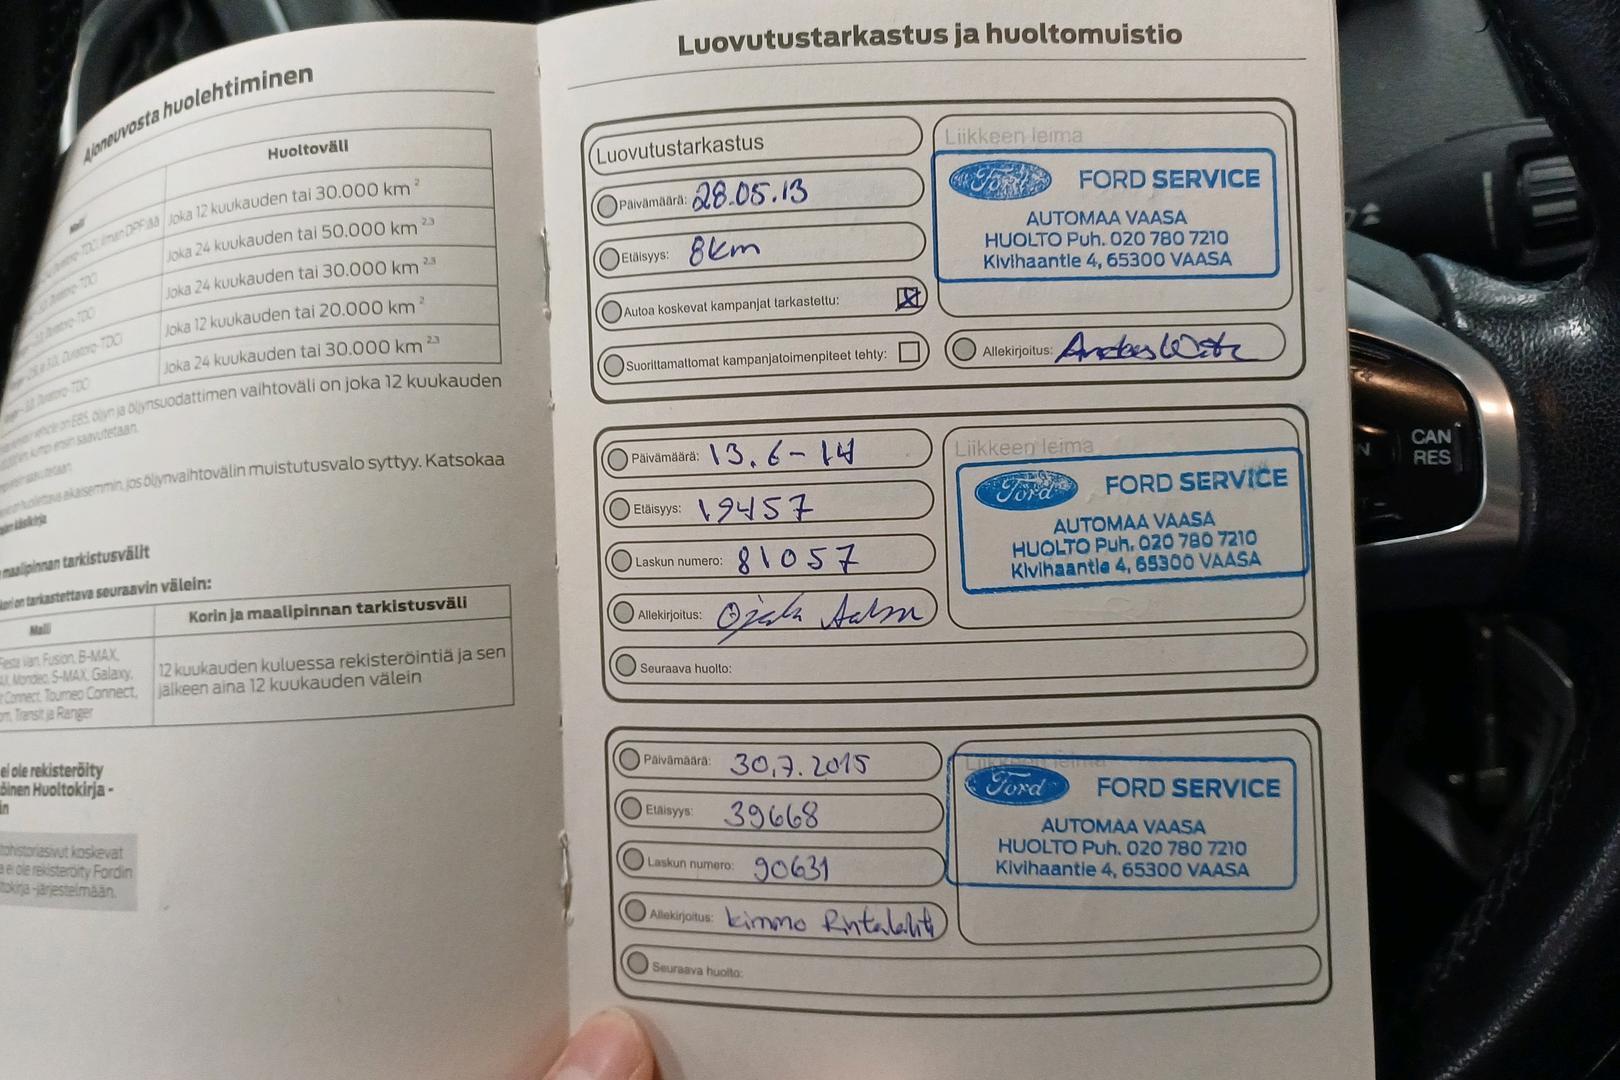 Ajoneuvosta huolehtiminen
Malli
Huoltoväli
Duratorq-TDCi, ilman DPF:ää
Joka 12 kuukauden tai 30.000 km 2
Joka 24 kuukauden tai 50.000 km 2,3
Joka 24 kuukauden tai 30.000 km 2,3
Joka 12 kuukauden tai 20.000 km 2
Joka 24 kuukauden tai 30.000 km 2,3
öljyn ja öljynsuodattimen vaihtoväli on joka 12 kuukauden
kumpi ensin saavutetaan.
on huollettava aikaisemmin, jos öljynvaihtovälin muistutusvalo syttyy. Katsokaa
käsikirja
maalipinnan tarkistusvälit
on tarkastettava seuraavin välein:
Malli
Korin ja maalipinnan tarkistusväli
Fiesta Van, Fusion, B-MAX,
Mondeo, S-MAX, Galaxy,
Connect, Tourneo Connect,
Transit ja Ranger
12 kuukauden kuluessa rekisteröintiä ja sen
jälkeen aina 12 kuukauden välein
ei ole rekisteröity
öinen Huoltokirja -
in
tohistoriasivut koskevat
a ei ole rekisteröity Fordin
tokirja -järjestelmään.
Luovutustarkastus ja huoltomuistio
Luovutustarkastus
Päivämäärä: 28.05.13
Etäisyys: 8km
Autoa koskevat kampanjat tarkastettu:
Suorittamattomat kampanjatoimenpiteet tehty:
Liikkeen leima
Ford FORD SERVICE
AUTOMAA VAASA
HUOLTO Puh. 020 780 7210
Kivihaantie 4, 65300 VAASA
Allekirjoitus:
Päivämäärä: 13.6-14
Etäisyys: 19457
Laskun numero: 81057
Allekirjoitus:
Seuraava huolto:
Liikkeen leima
Ford FORD SERVICE
AUTOMAA VAASA
HUOLTO Puh. 020 780 7210
Kivihaantie 4, 65300 VAASA
Päivämäärä: 30.7.2015
Etäisyys: 39668
Laskun numero: 90631
Allekirjoitus: Kimmo Rintalahti
Seuraava huolto:
Liikkeen leima
Ford FORD SERVICE
AUTOMAA VAASA
HUOLTO Puh. 020 780 7210
Kivihaantie 4, 65300 VAASA
CAN
RES